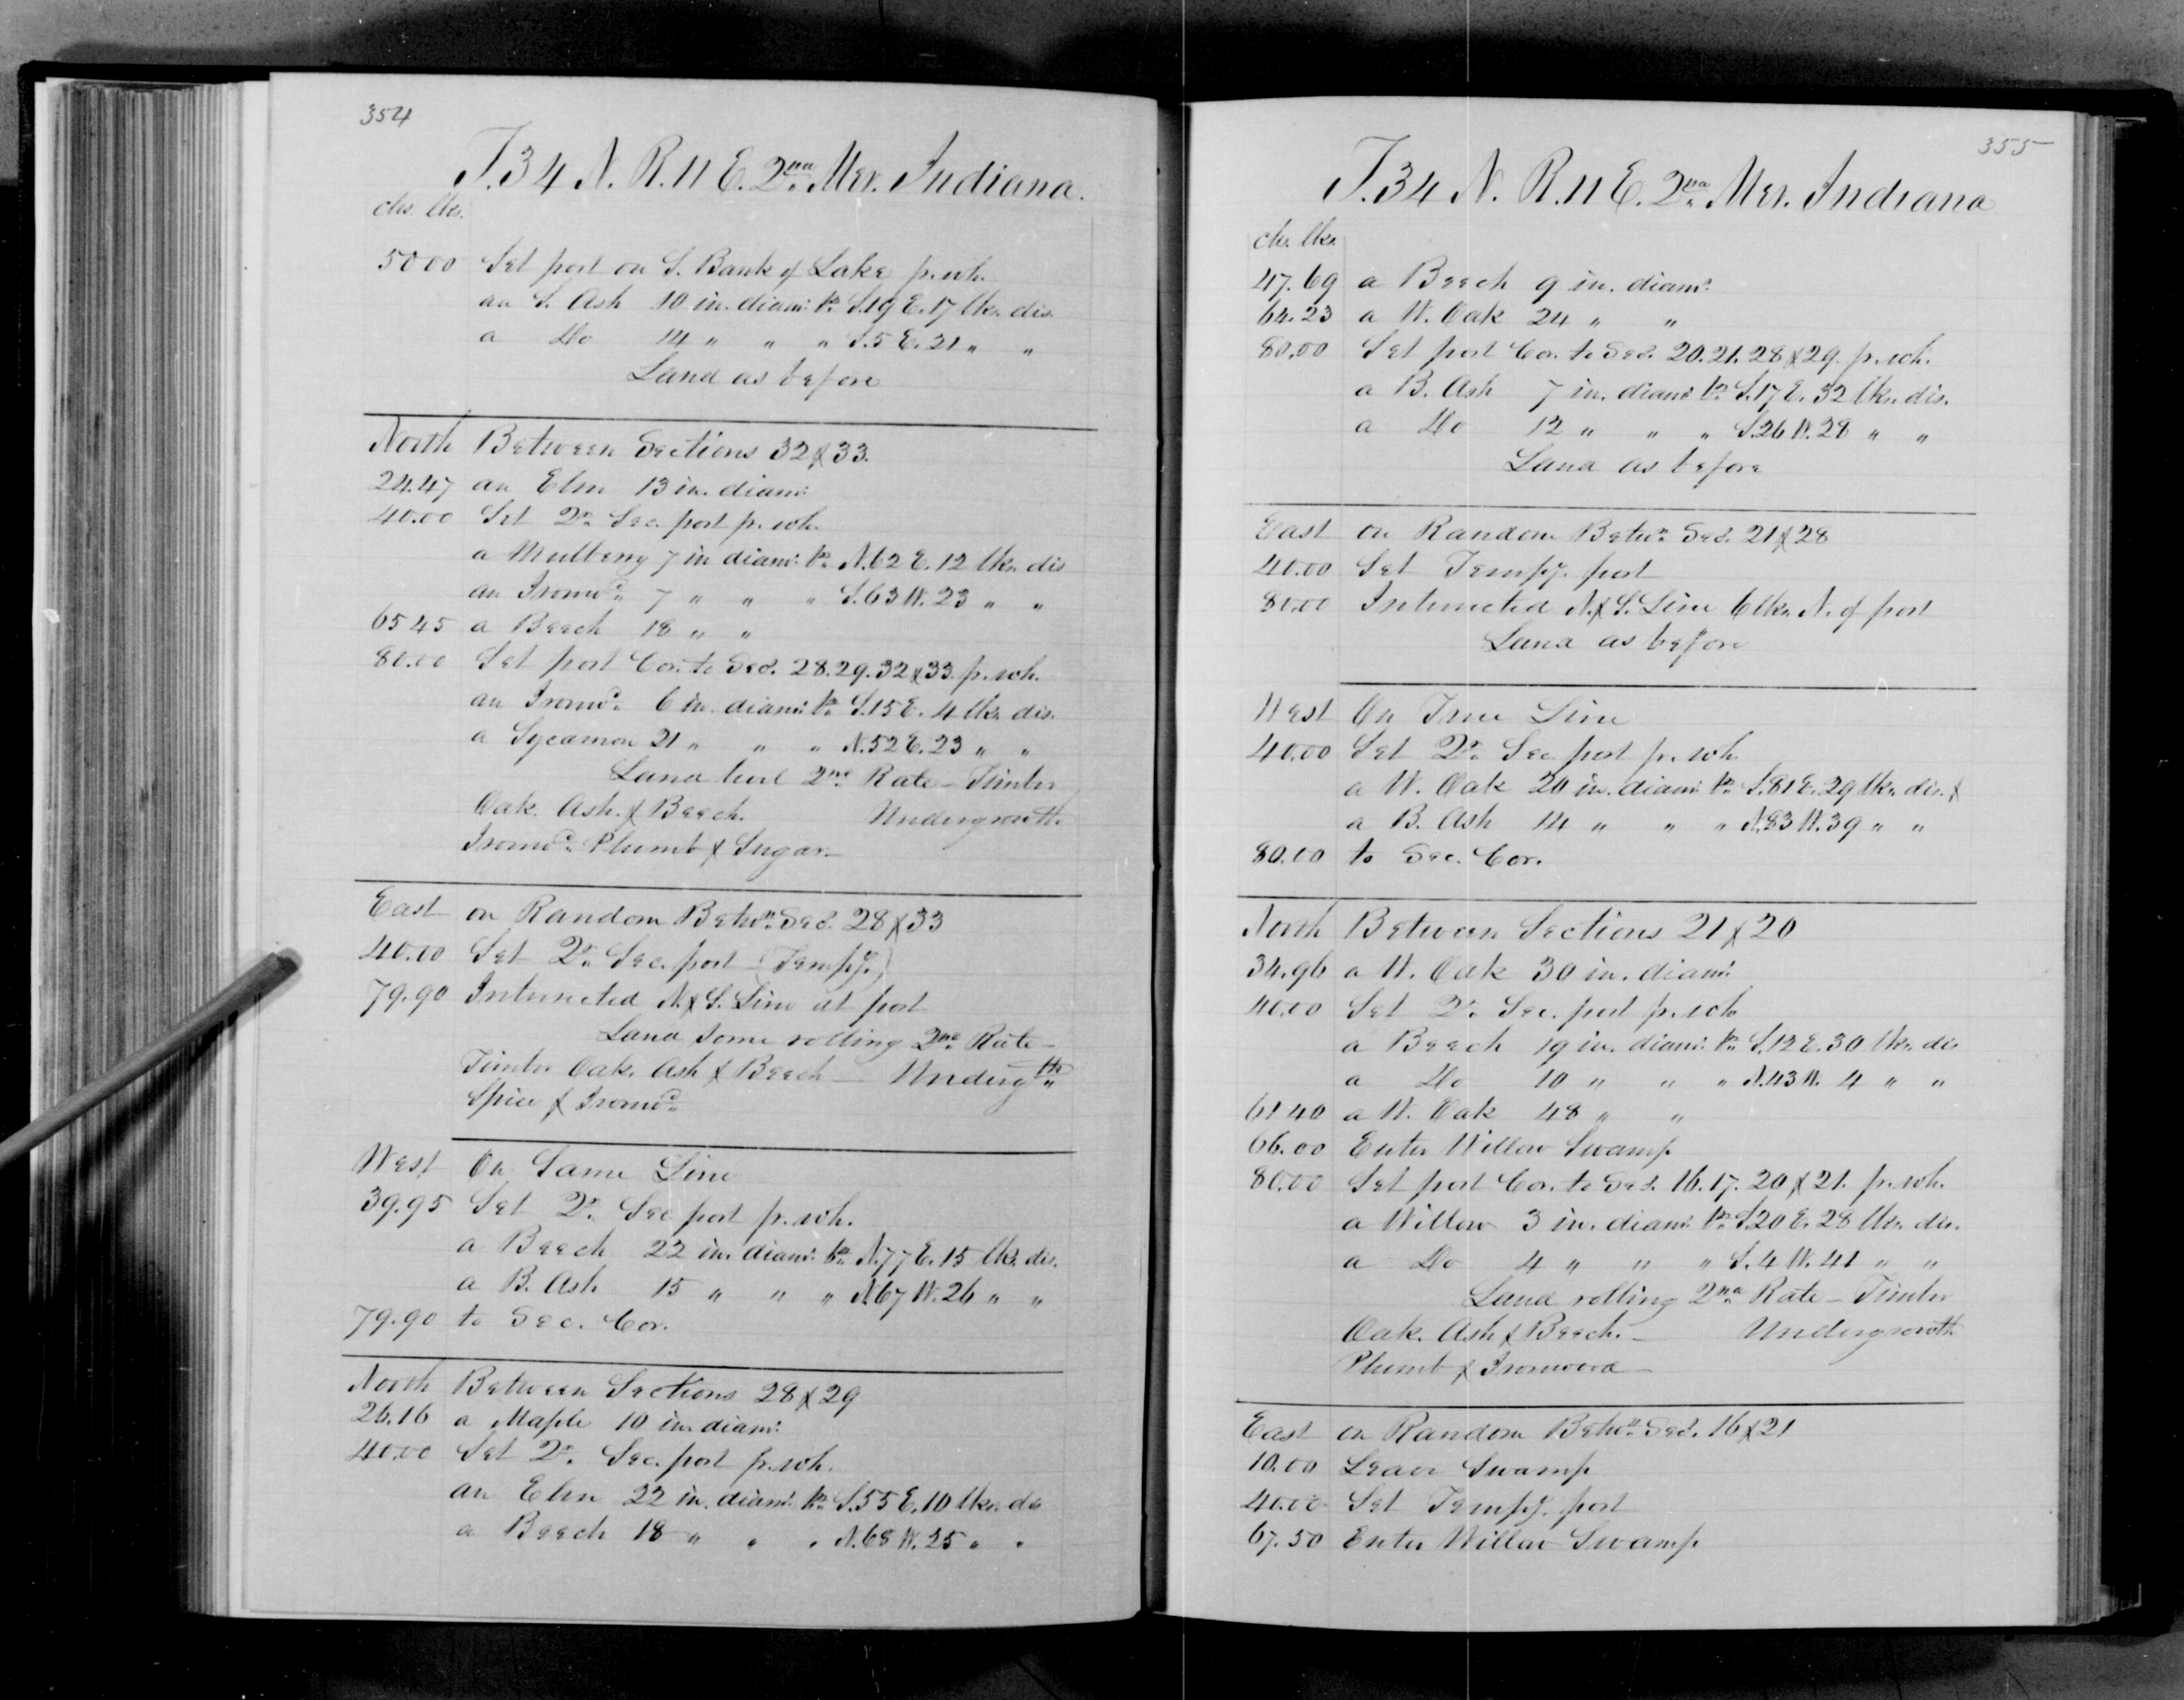 354
T. 34 N. R. 11 E. 2nd Mer. Indiana.
chs. lks.
50 00 Set post on S. Bank of Lake p. wh.
an S. Ash 10 in. diam: br. S. 19 E. 17 lks. dis.
a Do 14 " " " S. 5 E. 21 " "
Land as before
North Between Sections 32 & 33.
24.47 an Elm 13 in. diam:
40.00 Set Qr. Sec. post p. wh.
a Mulberry 7 in diam: br. N. 62 E. 12 lks. dis
an Ironwd. 7 " " " S. 63 W. 23 " "
65 45 a Beech 18 " "
80.00 Set post Cor. to Secs. 28. 29. 32 & 33. p. wh.
an Ironwd. 6 in. diam: br. S. 15 E. 4 lks. dis.
a Sycamore 21 " " " N. 52 E. 23 " "
Land level 2nd Rate - Timber
Oak. Ash. & Beech. Undergrowth
Ironwd. Plumb & Sugar.-
East on Random Betwn. Secs. 28 & 33
40.00 Set Qr. Sec. post (Tempy.)
79.90 Intersected N. & S. Line at post
Land some rolling 2nd Rate -
Timber Oak. Ash & Beech - Undergth.
Spice & Ironwd.
West On Same Line
39.95 Set Qr. Sec post p. wh.
a Beech 22 in. diam: br. N. 77 E. 15 lks. dis.
a B. Ash 15 " " " N. 67 W. 26 " "
79.90 to Sec. Cor.
North Between Sections 28 & 29
26.16 a Maple 10 in. diam:
40.00 Set Qr. Sec. post p. wh.
an Elm 22 in. diam: br. S. 55 E. 10 lks. dis
a Beech 18 " " " N. 68 W. 25 " "
355
T. 34 N. R. 11 E. 2nd Mer. Indiana
chs. lks.
47.69 a Beech 9 in. diam:
64.23 a W. Oak 24 " "
80.00 Set post Cor. to Secs. 20. 21. 28 & 29. p. wh.
a B. Ash 7 in. diam: br. S. 17 E. 32 lks. dis.
a Do 12 " " " S. 26 W. 28 " "
Land as before
East on Random Betwn. Secs. 21 & 28
40.00 Set Tempy. post
80.00 Intersected N. & S. Line 6 lks. N. of post
Land as before
West On True Line
40.00 Set Qr. Sec post p. wh.
a W. Oak 20 in. diam: br. S. 81 E. 29 lks. dis. &
a B. Ash 14 " " " N. 83 W. 39 " "
80.00 to Sec. Cor.
North Between Sections 21 & 20
34.96 a W. Oak 30 in. diam:
40.00 Set Qr. Sec. post p. wh
a Beech 19 in. diam: br. S. 12 E. 30 lks. dis
a Do 10 " " " N. 43 W. 4 " "
61 40 a W. Oak 48 " "
66.00 Enter Willow Swamp
80.00 Set post Cor. to Secs. 16. 17. 20 & 21. p. wh.
a Willow 3 in. diam: br. S. 20 E. 28 lks. dis.
a Do 4 " " " S. 4 W. 41 " "
Land rolling 2nd Rate - Timber
Oak. Ash & Beech. - Undergrowth
Plumb & Ironwood -
East on Random Betwn. Secs. 16 & 21
10.00 Leave Swamp
40.00 Set Tempy. post
67.50 Enter Willow Swamp